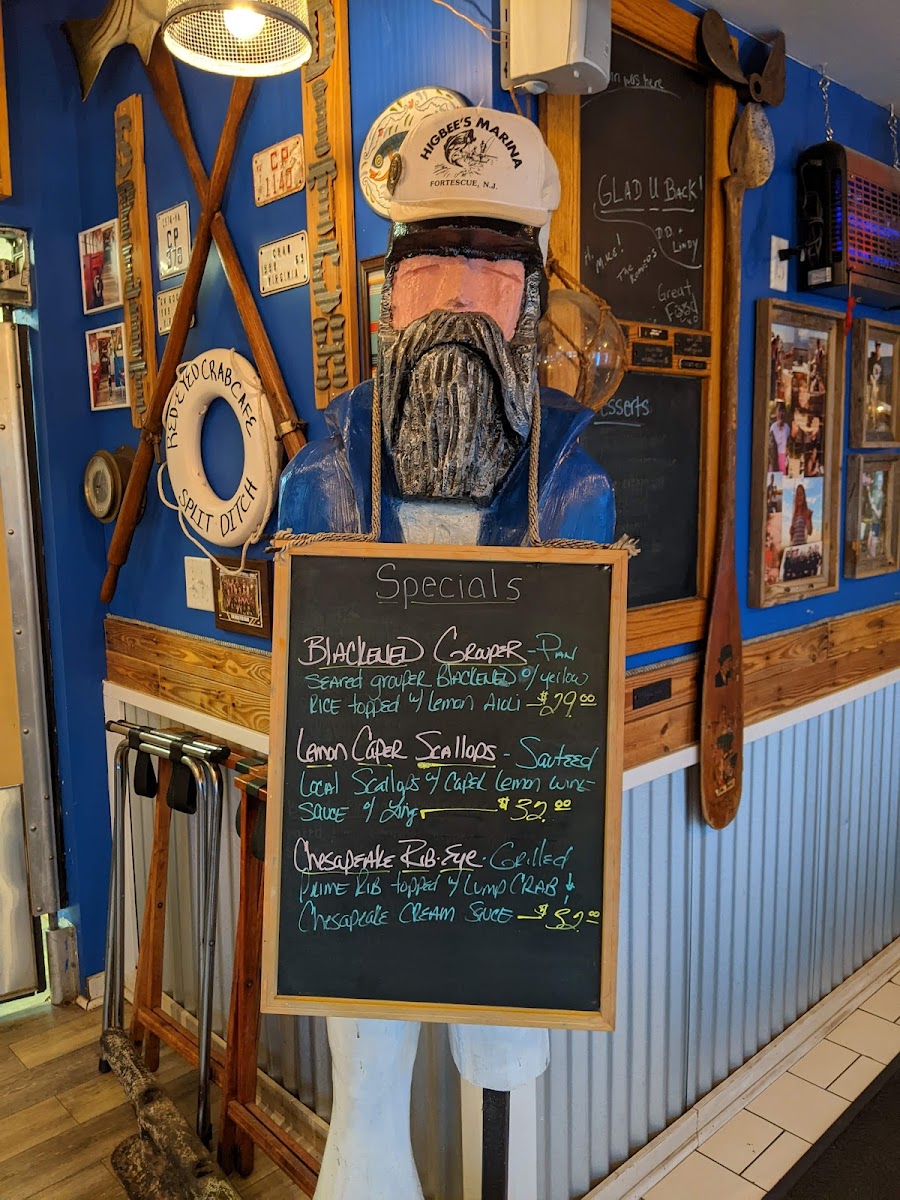 HIGBEE'S MARINA
FORTESCUE, N.J.
RED-EYED CRAB CAFE
SPLIT DITCH
CP
1140
CP
375
VIRGINIA
was here
GLAD U BACK!
Hi
Mike!
The Romeos
D.D. +
Lindy
Great
Food
esserts
Specials
BLACKENED GROUPER - PAN
SEARED grouper BLACKENED w/ yellow
RICE topped w/ Lemon AIOLI - $29.00
Lemon CAPER SCALLOPS - SAUTEED
LOCAL SCALLOPS w/ CAPER Lemon WINE
SAUCE w/ Ling $32.00
CHESAPEAKE RIB-EYE - GRILLED
PRIME RIB topped w/ LUMP CRAB +
CHESAPEAKE CREAM SAUCE - $32.00